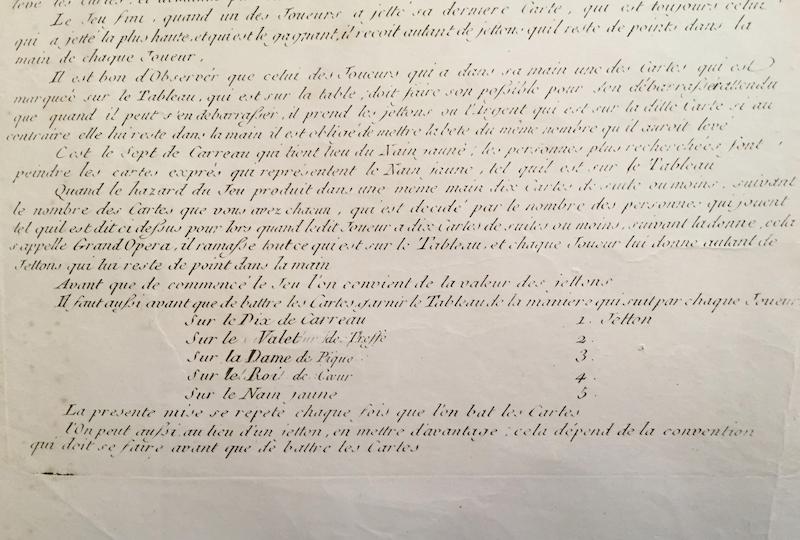 levé les Cartes,
Le Jeu fini, quand un des Joueurs a jetté sa derniere Carte, qui est toujours celui
qui a jetté la plus haute, et qui est le gagnant, il recoit autant de jettons qu'il reste de points dans la
main de chaque Joueur.
Il est bon d'Observér que celui des Joueurs qui a dans sa main une des Cartes qui est
marqueé sur le Tableau, qui est sur la table, doit faire son possible pour s'en débarrassér attendu
que quand il peut s'en débarrasser, il prend les jettons ou l'Argent qui est sur la ditte Carte si au
contraire elle lui reste dans la main il est obligé de mettre la bete du même nombre qu'il auroit levé
C'est le Sept de Carreau qui tient lieu du Nain jaune; les personnes plus recherchées font
peindre les cartes exprés qui représentent le Nain jaune, tel qu'il est sur le Tableau
Quand le hazard du Jeu produit dans une même main dix Cartes de suite ou moins, suivant
le nombre des Cartes que vous avez chacun, qui est decidé par le nombre des personnes qui jouent
tel qu'il est dit ci dessus pour lors quand ledit Joueur a dix Cartes de suites ou moins, suivant la donne, cela
s'appelle Grand Opera, il ramasse tout ce qui est sur le Tableau, et chaque Joueur lui donne autant de
Jettons qui lui reste de point dans la main
Avant que de commencé le Jeu l'on convient de la valeur des jettons
Il faut aussi avant que de battre les Cartes garnir le Tableau de la maniere qui suit par chaque Joueur.
Sur le Dix de Carreau 1. Jetton
Sur le Valet de Treffe 2.
Sur la Dame de Pique 3.
Sur le Roi de Cœur 4.
Sur le Nain jaune 5.
La presente mise se repeté chaque fois que l'on bat les Cartes
l'On peut aussi, au lieu d'un jetton, en mettre d'avantage; cela dépend de la convention
qui doit se faire avant que de battre les Cartes